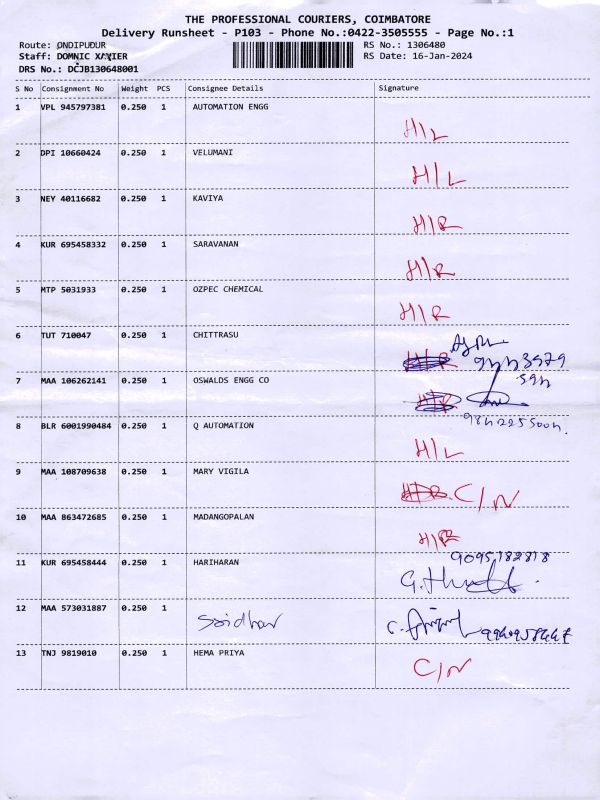 THE PROFESSIONAL COURIERS, COIMBATORE
Delivery Runsheet - P103 - Phone No.:0422-3505555 - Page No.:1
Route: ONDIPUDUR RS No.: 1306480
Staff: DOMNIC XAVIER RS Date: 16-Jan-2024
DRS No.: DCJB130648001
S No Consignment No Weight PCS Consignee Details Signature
1 VPL 945797381 0.250 1 AUTOMATION ENGG H/L
2 DPI 10660424 0.250 1 VELUMANI H/L
3 NEY 40116682 0.250 1 KAVIYA H/R
4 KUR 695458332 0.250 1 SARAVANAN H/R
5 MTP 5031933 0.250 1 OZPEC CHEMICAL H/R
6 TUT 710047 0.250 1 CHITTRASU
7 MAA 106262141 0.250 1 OSWALDS ENGG CO
8 BLR 6001990484 0.250 1 Q AUTOMATION H/L
9 MAA 108709638 0.250 1 MARY VIGILA C/N
10 MAA 863472685 0.250 1 MADANGOPALAN H/R
11 KUR 695458444 0.250 1 HARIHARAN
12 MAA 573031887 0.250 1 Sridhar
13 TNJ 9819010 0.250 1 HEMA PRIYA C/N